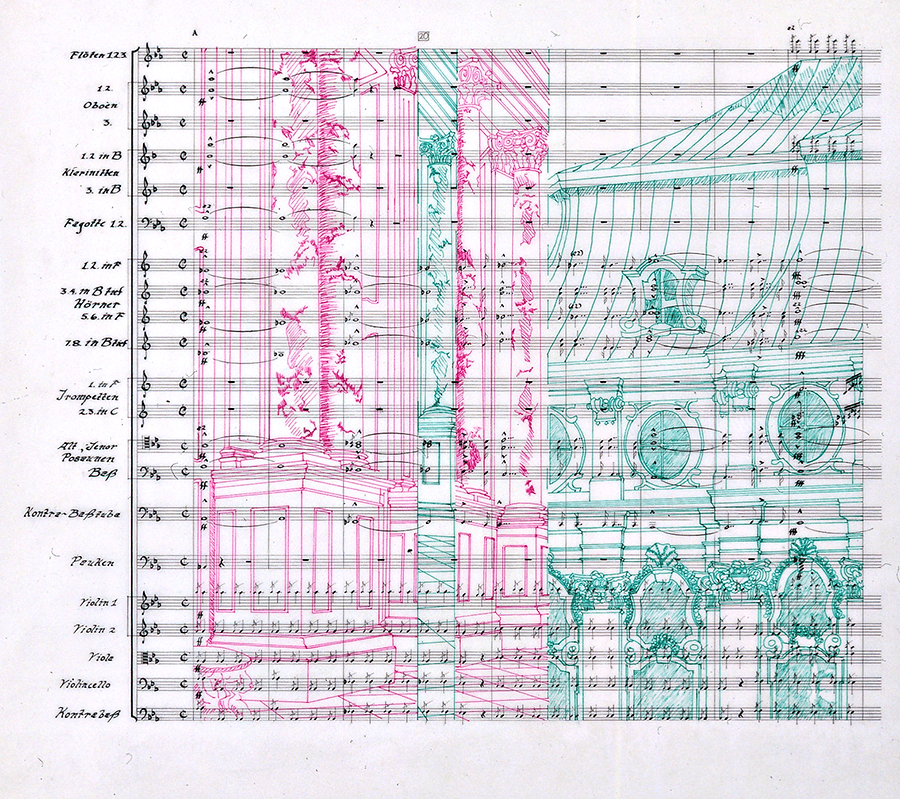 A
20
a2
Flöten 1 2 3.
1 2.
Oboen
3.
1. 2 in B
Klarinetten
3. in B
Fagotte 1 2.
1. 2. in F
3. 4. in B
Hörner
5. 6. in F
7. 8. in B
1. in F
Trompeten
2 3. in C
Alt, Tenor
Posaunen
Baß
Kontra-Baßtuba
Pauken
Violin 1
Violin 2
Viola
Violincello
Kontrabaß